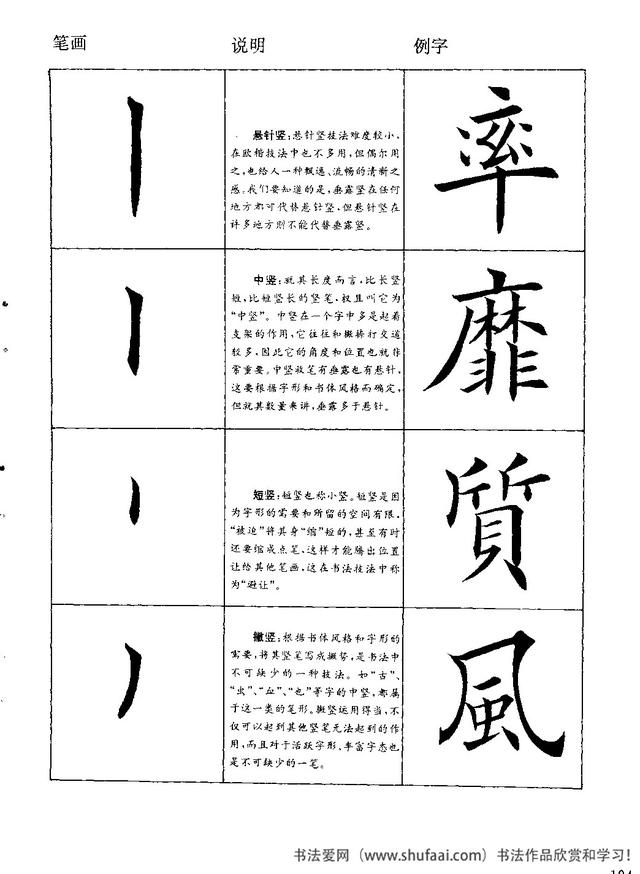 笔画 说明 例字
悬针竖:悬针竖技法难度较小,
在欧楷技法中也不多用,但偶尔用
之,也给人一种飘逸、流畅的清新之
感。我们要知道的是,垂露竖在任何
地方都可代替悬针竖,但悬针竖在
许多地方则不能代替垂露竖。
率
中竖:就其长度而言,比长竖
短,比短竖长的竖笔,权且叫它为
“中竖”。中竖在一个字中多是起着
支架的作用,它往往和横捧打交道
较多,因此它的角度和位置也就非
常重要。中竖收笔有垂露也有悬针,
这要根据字形和书体风格而确定,
但就其数量来讲,垂露多于悬针。
靡
短竖:短竖也称小竖。短竖是因
为字形的需要和所留的空间有限,
“被迫”将其身“缩”短的,甚至有时
还要缩成点笔、这样才能腾出位置
让给其他笔画,这在书法技法中称
为“避让”。
質
撇竖:根据书体风格和字形的
需要,将其竖笔写成撇势,是书法中
不可缺少的一种技法。如“古”、
“虫”、“血”、“也”等字的中竖,都属
于这一类的笔形。撇竖运用得当,不
仅可以起到其他竖笔无法起到的作
用,而且对于活跃字形、丰富字态也
是不可缺少的一笔。
風
书法爱网(www.shufaai.com)书法作品欣赏和学习!